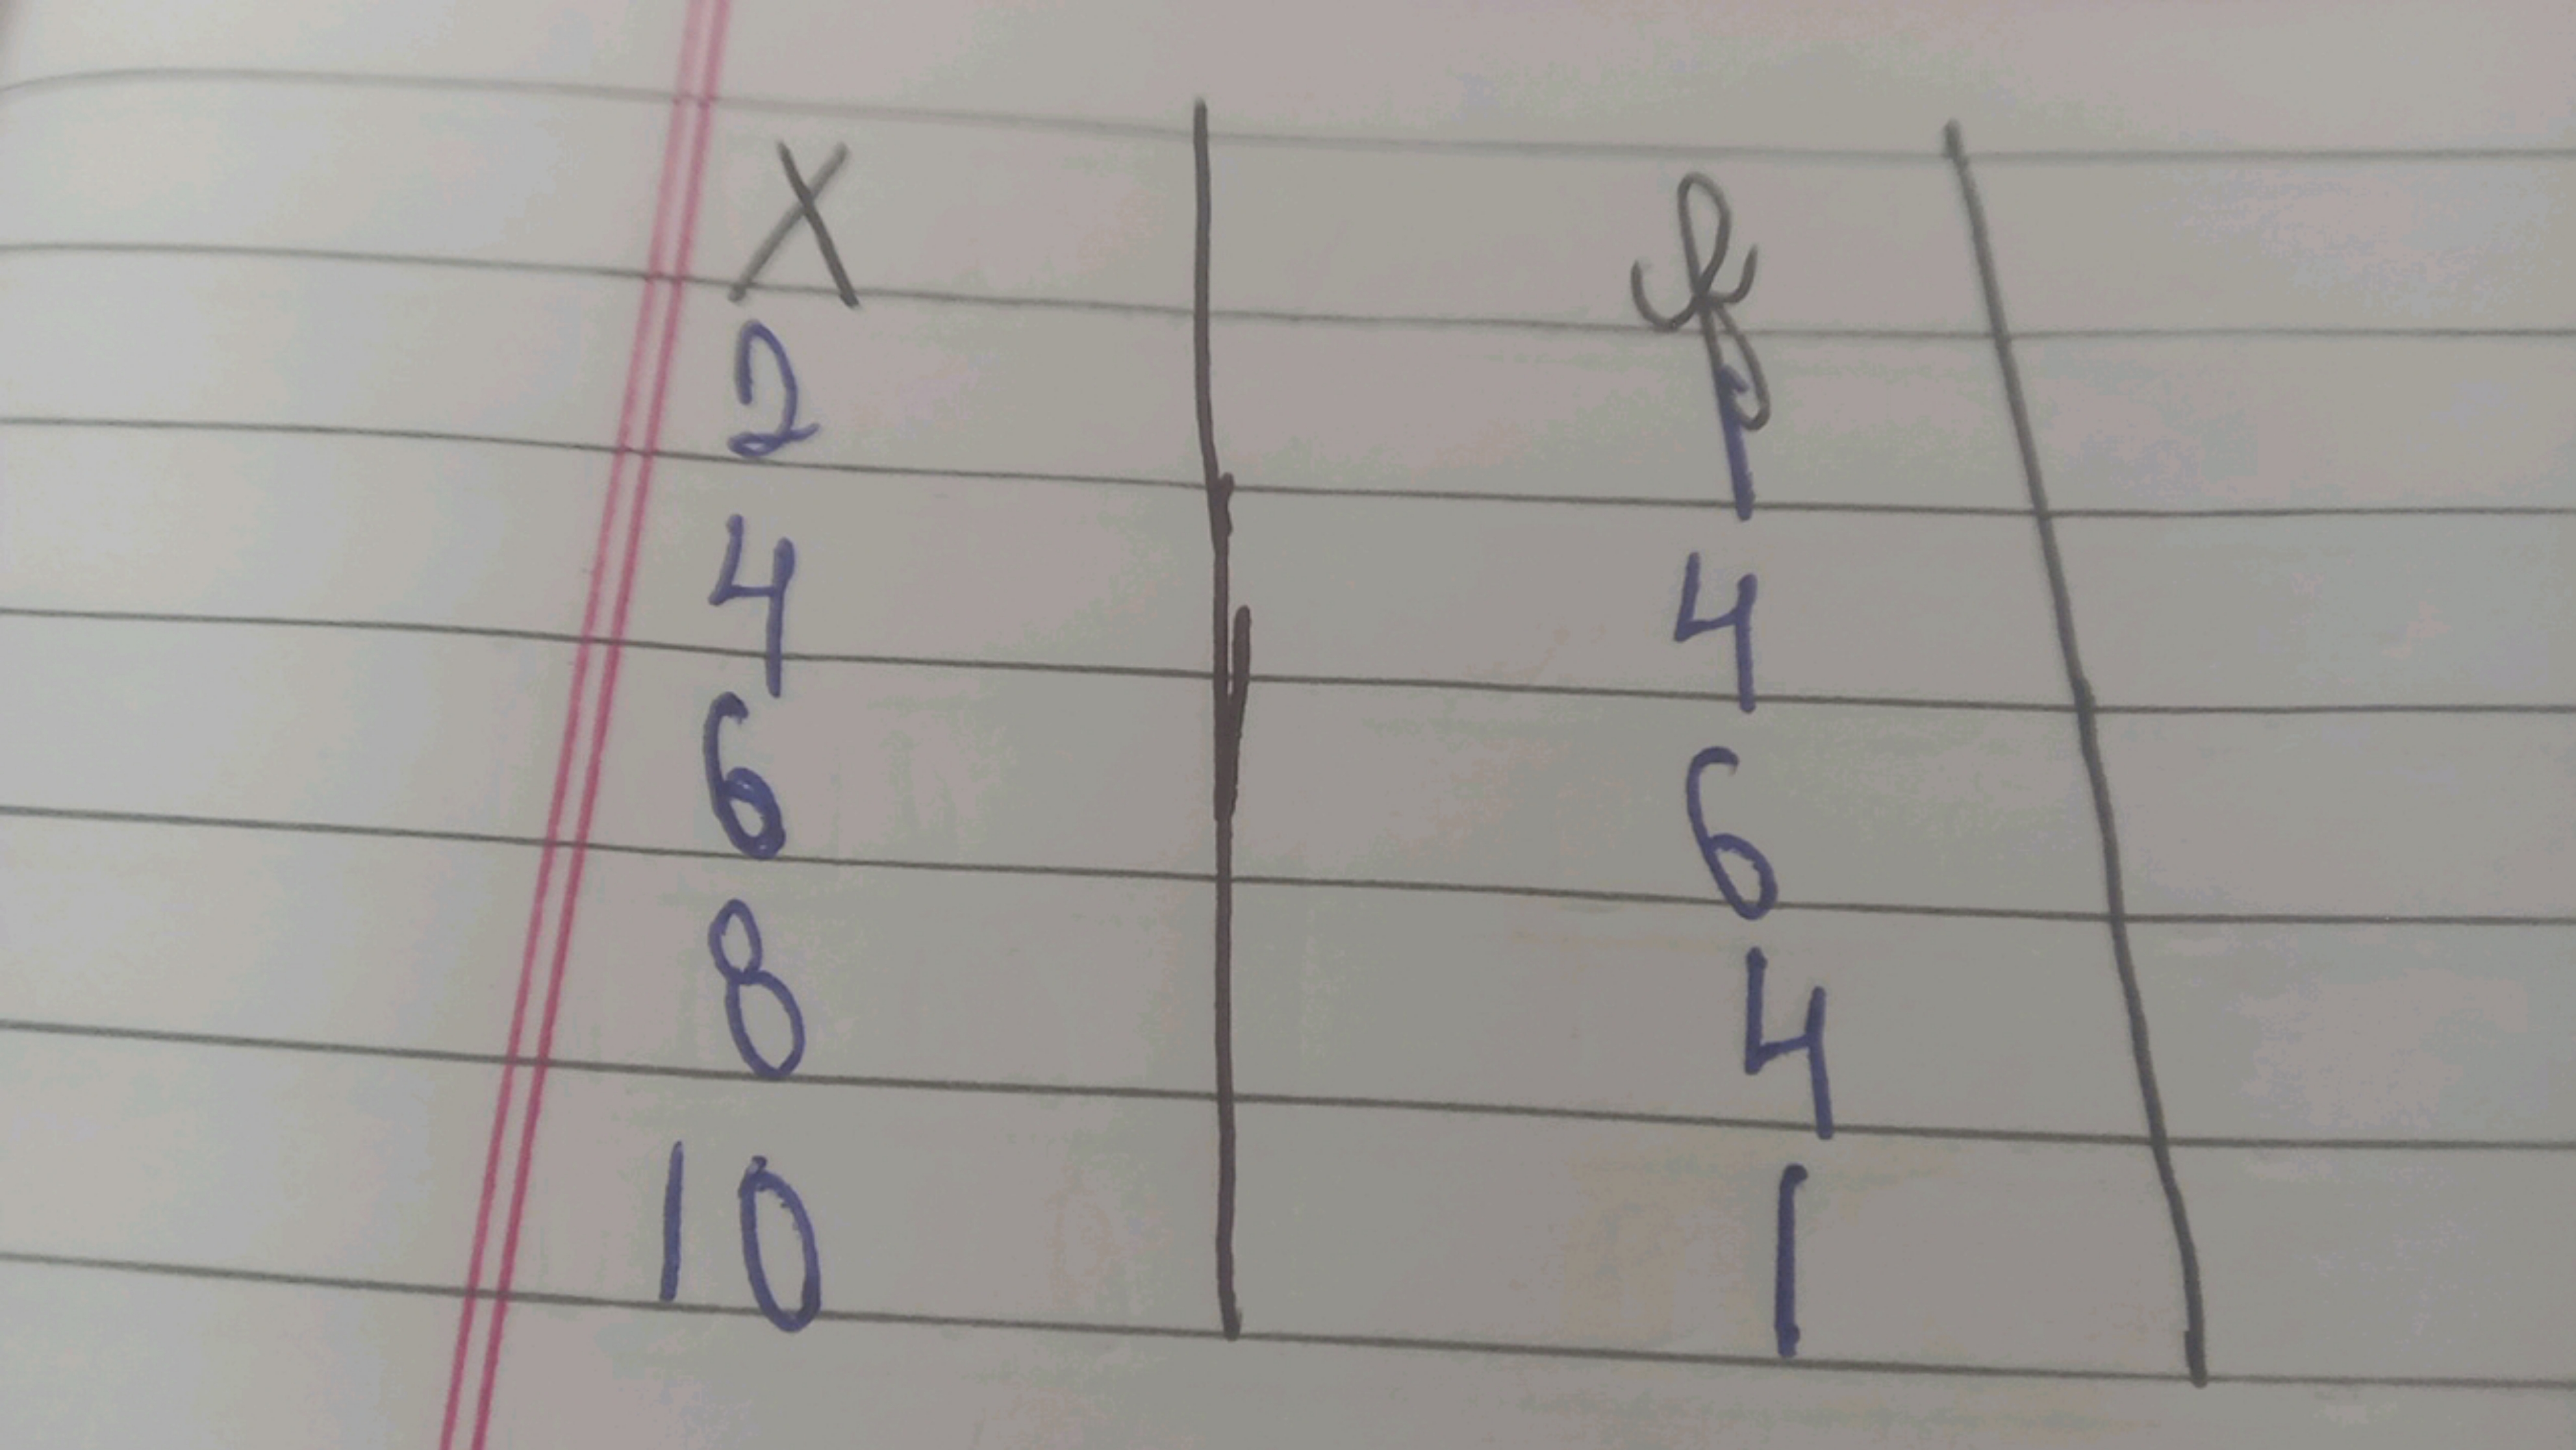 X f
2 1
4 4
6 6
8 4
10 1